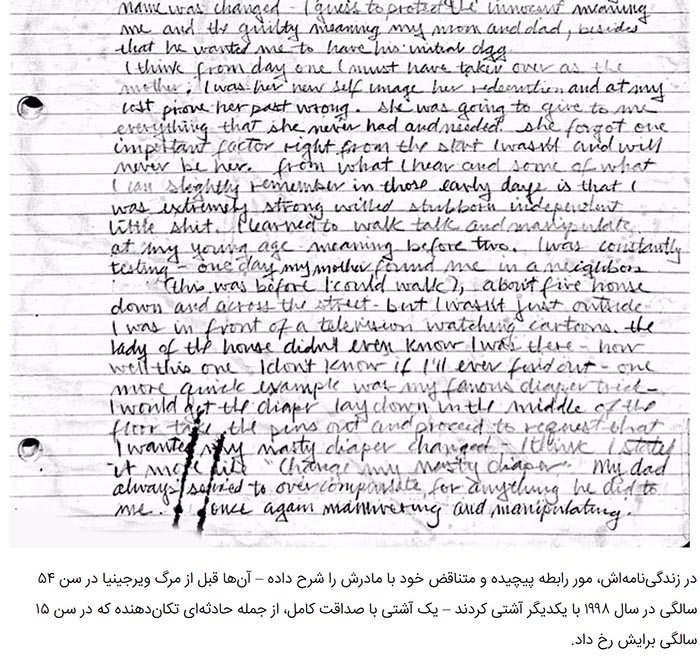 name was changed - I guess to protect the innocent meaning
me and the guilty meaning my mom and dad, besides
that he wanted me to have his initial dgg
I think from day one I must have taken over as the
mother; I was her new self image her redemtion and at my
cost prove her past wrong. she was going to give to me
everything that she never had and needed. she forgot one
important factor right from the start I wasnt and will
never be her. from what I hear and some of what
I can slightly remember in those early days is that I
was extremely strong willed stubborn independent
little shit. I learned to walk talk and manipulate
at my young age meaning before two. I was constantly
testing - one day my mother found me in a neighbors
(this was before I could walk), about five house
down and across the street - but I wasnt just outside
I was in front of a television watching cartoons. the
lady of the house didn't even know I was there - how
well this one I dont know if I'll ever find out - one
more quick example was my famous diaper trick -
I would get the diaper lay down in the middle of the
floor take the pins out and proceed to request that
I wanted my nasty diaper changed. I think I stated
it more like "Change my nasty diaper". My dad
always seemed to over compensate for anything he did to
me. once again manuvering and manipulating.
در زندگی‌نامه‌اش، مور رابطه پیچیده و متناقض خود با مادرش را شرح داده – آن‌ها قبل از مرگ ویرجینیا در سن ۵۴
سالگی در سال ۱۹۹۸ با یکدیگر آشتی کردند – یک آشتی با صداقت کامل، از جمله حادثه‌ای تکان‌دهنده که در سن ۱۵
سالگی برایش رخ داد.